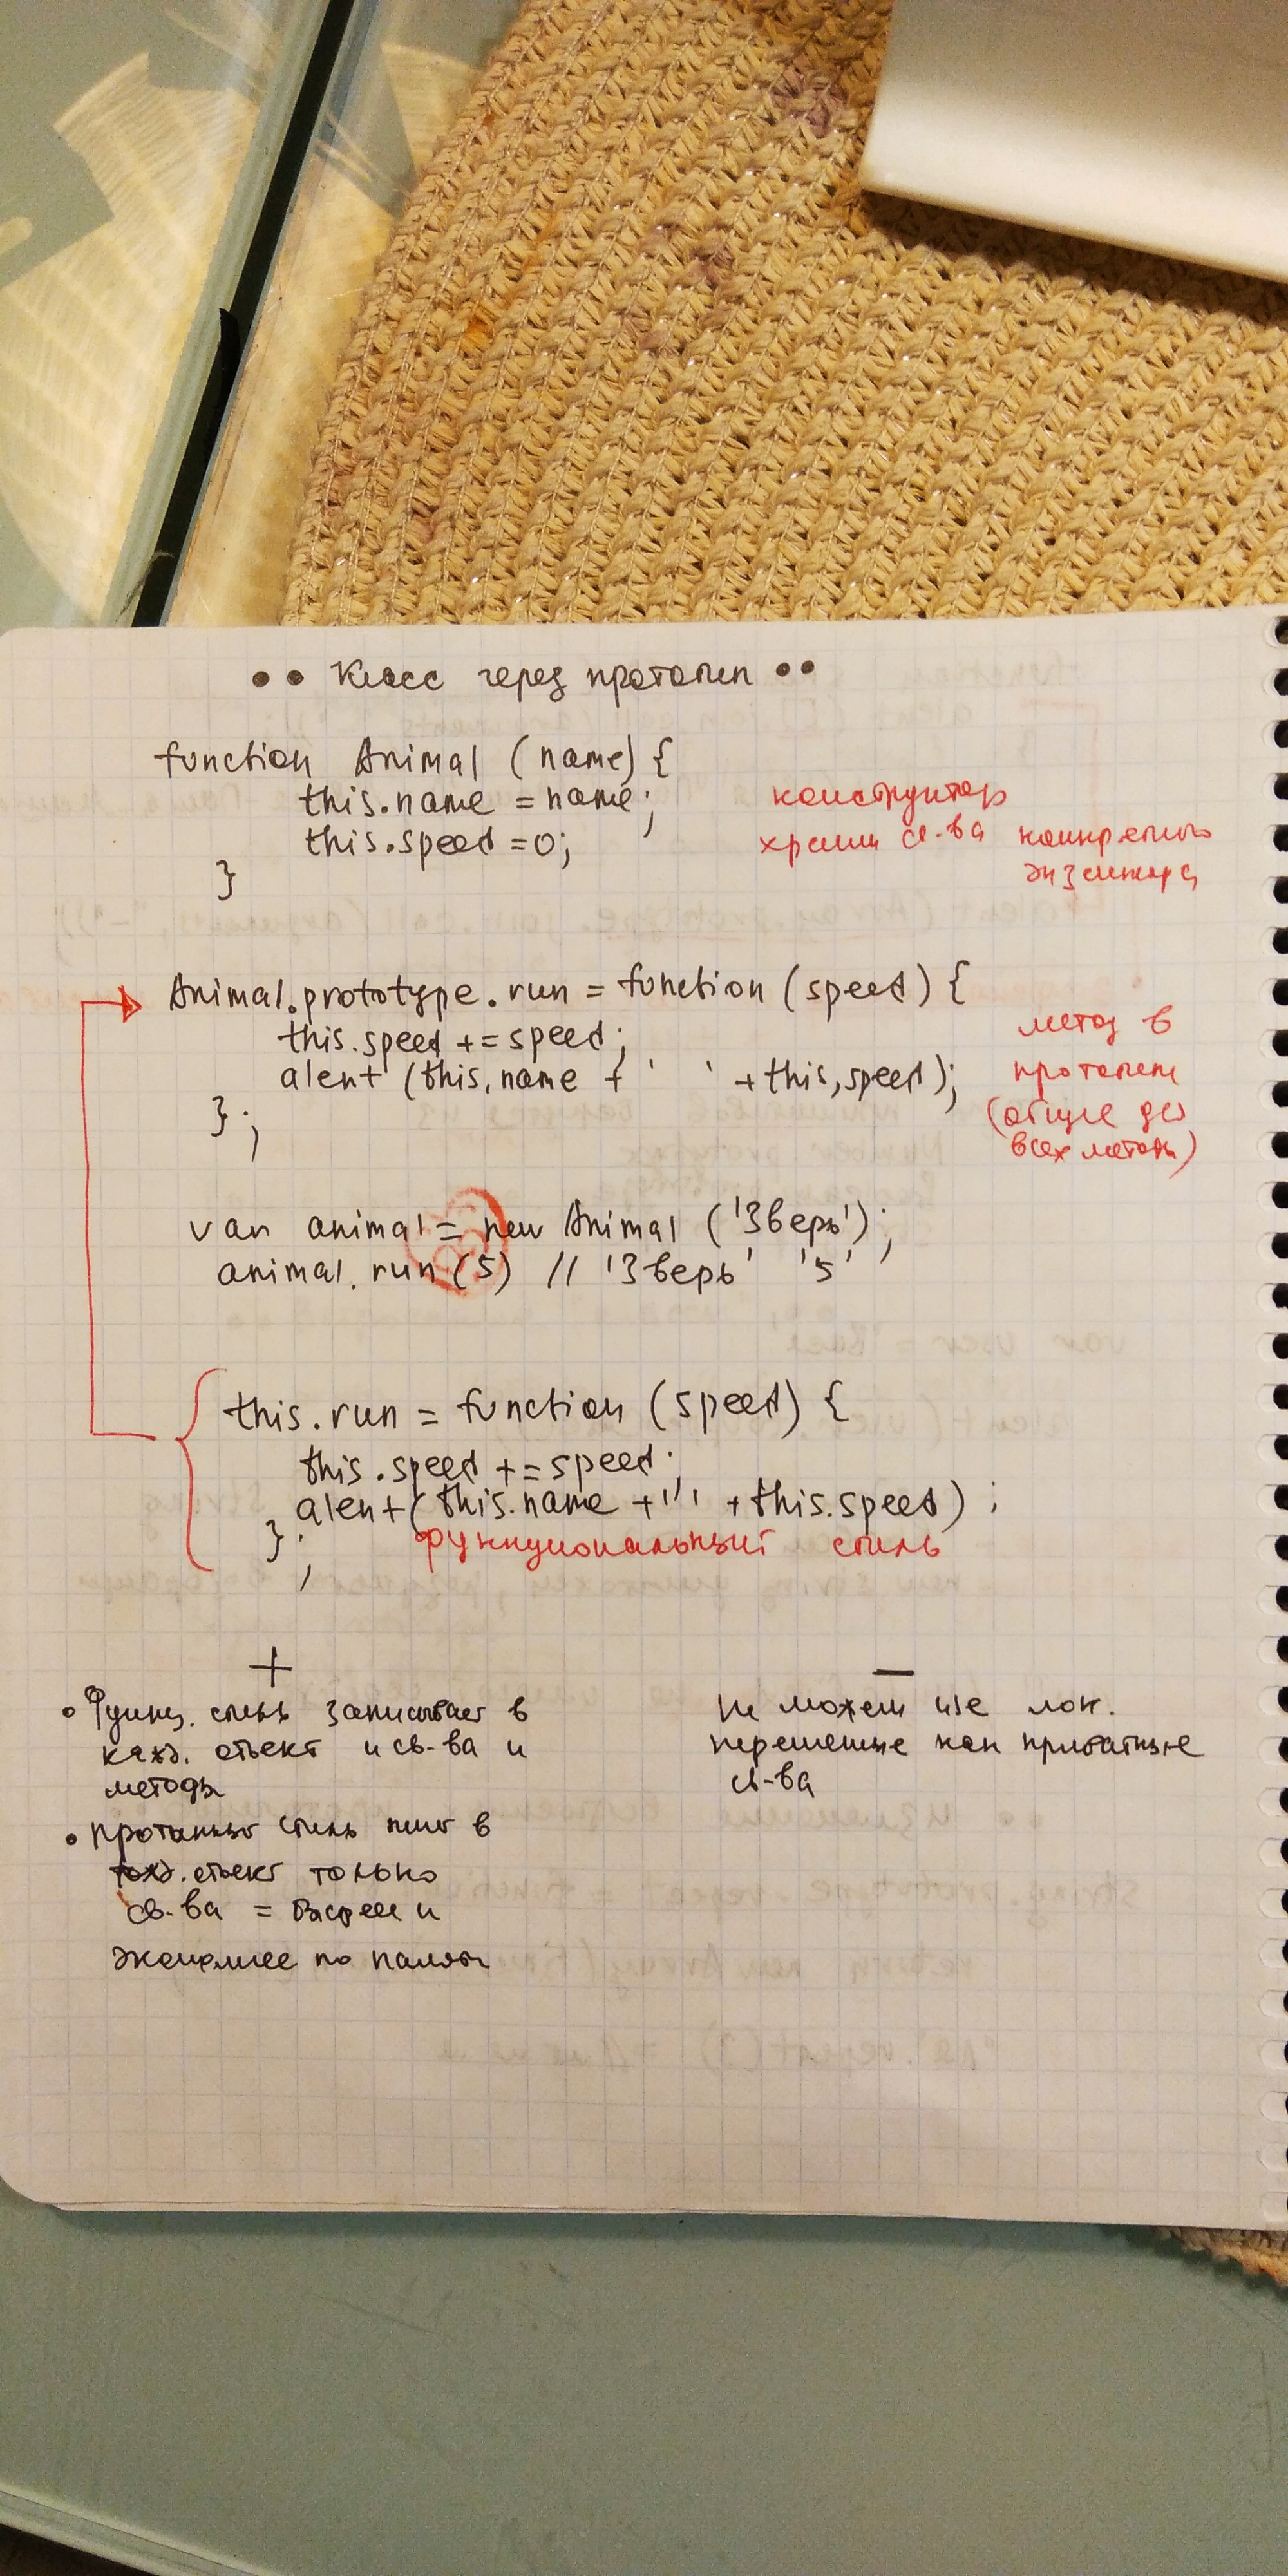 •• Класс через прототип ••
function Animal (name) {
this.name = name;
this.speed = 0;
}
конструктор
хранит св-ва конкретного
экземпляра
Animal.prototype.run = function (speed) {
this.speed += speed;
alert (this.name + ' ' + this.speed);
};
метод в
прототипе
(общие для
всех методы)
var animal = new Animal ('Зверь');
animal.run (5) // 'Зверь' '5'
this.run = function (speed) {
this.speed += speed;
alert (this.name + ' ' + this.speed);
};
функциональный стиль
+
• Функц. стиль записывает в
кажд. объект и св-ва и
методы
• прототипный стиль пишет в
кажд. объект только
св-ва = быстрее и
экономнее по памяти
—
Не можем исп лок.
переменные как приватные
св-ва